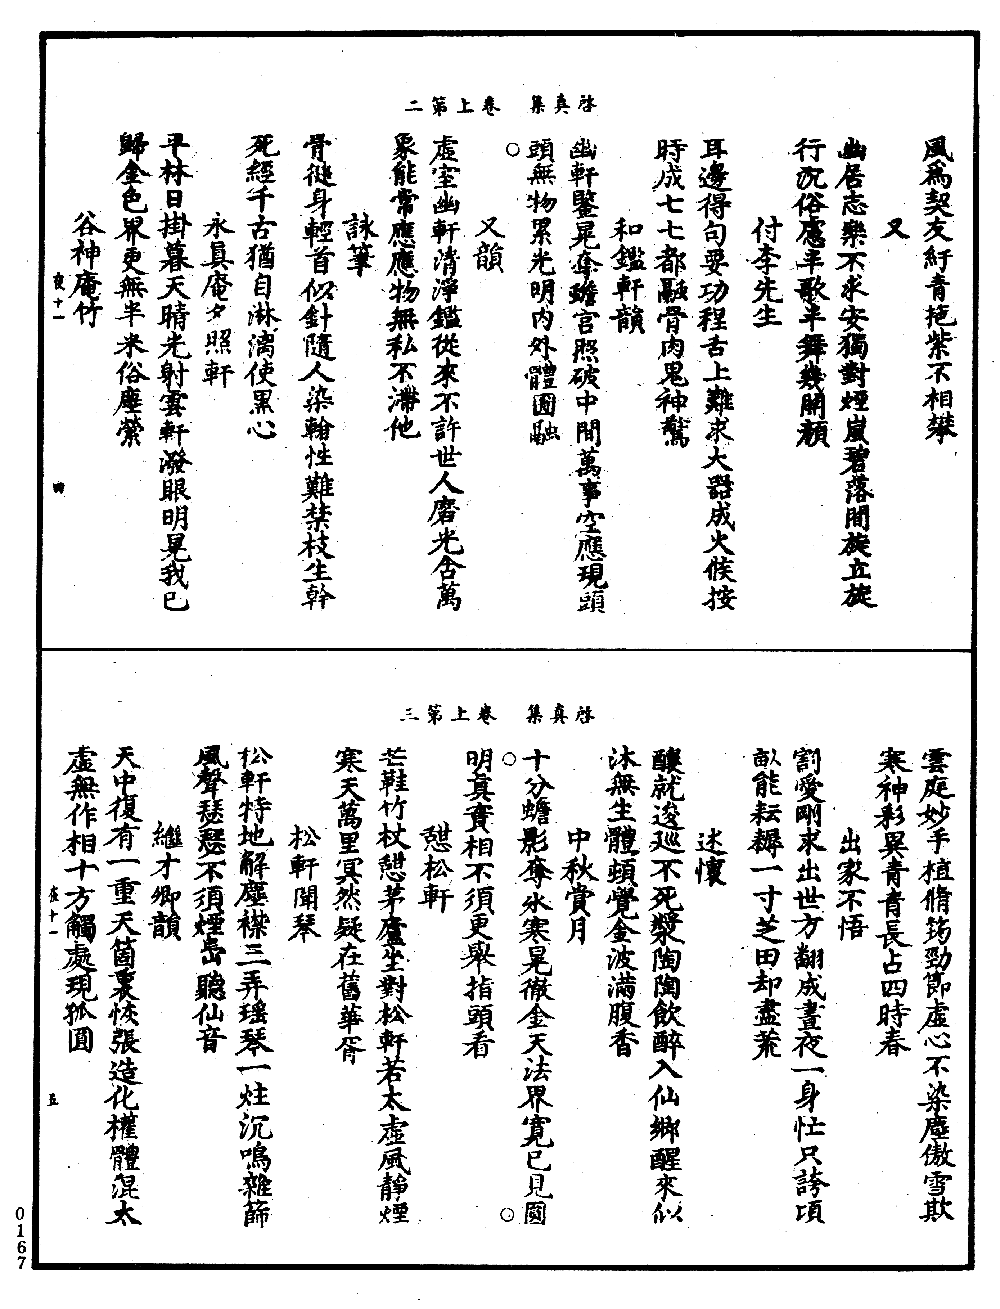 啓真集　卷上第二
風爲契友紆青拖紫不相攀
又
幽居志樂不求安獨對煙嵐碧落間旋立旋
行沉俗慮半歌半舞幾開顏
付李先生
耳邊得句要功程舌上難求大器成火候按
時成七七都融骨肉鬼神驚
和鑑軒韻
幽軒鑒晃奪蟾宮照破中間萬事空應現頭
頭無物累光明內外體圓融
○
又韻
虛室幽軒清淨鑑從來不許世人磨光含萬
象能常應應物無私不滯他
詠筆
骨徤身輕首似針隨人染翰性難禁枝生幹
死經千古猶自淋漓使黑心
永真庵夕照軒
平林日掛暮天晴光射雲軒潑眼明晃我已
歸金色界更無半米俗塵縈
谷神庵竹
夜十一
四
啓真集　卷上第三
雲庭妙手植脩筠勁節虛心不染塵傲雪欺
寒神彩異青青長占四時春
出家不悟
割愛剛求出世方翻成晝夜一身忙只誇項
畝能耘耨一寸芝田却盡荒
述懷
釀就逡巡不死漿陶陶飲醉入仙鄉醒來似
沐無生體頓覺金波滿腹香
中秋賞月
十分蟾影奪氷寒晃徹金天法界寬已見圓
○　○
明真實相不須更舉指頭看
憇松軒
芒鞋竹杖憇茅廬坐對松軒若太虛風靜煙
寒天萬里冥然疑在舊華胥
松軒聞琴
松軒特地解塵襟三弄瑶琴一炷沉鳴雜篩
風聲瑟瑟不須煙島聽仙音
繼才卿韻
天中復有一重天箇裏恢張造化權體混太
虛無作相十方觸處現狐圓
十一
五
0167